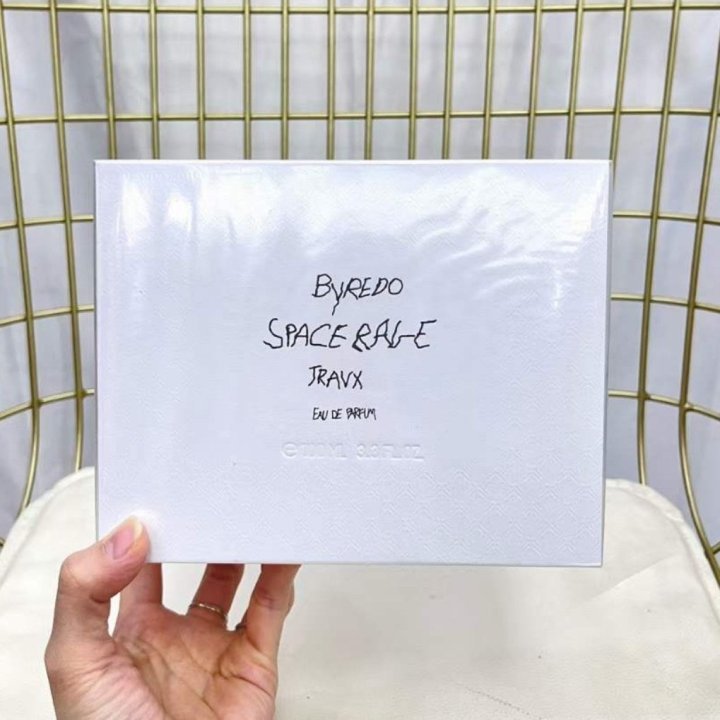 BYREDO
SPACE RAGE
TRAVX
EAU DE PARFUM
℮ 100 ML 3.3 FL.OZ.